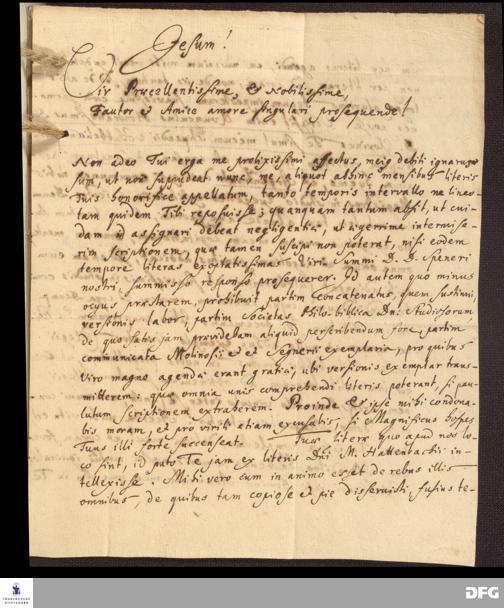 Jesum!
Vir Praecellentissime, & Nobilissime,
Fautor et Amice amore singulari prosequende!
Non adeo Tui erga me prolixissimi affectus, meiq debiti ignarus
sum, ut non suppudeat nunc, me, aliquot abhinc mensibus literis
Tuis honorifice appellatum, tanto temporis intervallo ne lineo-
lam quidem Tibi reposuisse; quanquam tantum absit, ut cui-
dam id assignari debeat negligentiae, ut aegerrime intermise-
rim scriptionem, quae tamen suscipi non poterat, nisi eodem
tempore literas exoptatissimas Viri Summi D. D. Speneri
nostri, summisso responso prosequerer. Id autem quo minus
ocyus praestarem, prohibuit partim Concatenatus, quem sustinui,
versionis labor, partim Societas Philo-biblica Dnn. Studiosorum
de quo satis jam providebam aliquid perscribendum fore, partim
communicata Molinosii et Segnerii exemplaria, pro quibus
Viro magno agendae erant gratiae, ubi versionis exemplar trans-
mitterem: quae omnia unis comprehendi literis poterant, si pau-
lulum scriptionem extraherem. Proinde & ipse mihi condona-
bis moram, et pro virili etiam excusabis, si Magnificus hospes
Tuus illi forte succenseat. Tuae literae quo apud nos lo-
co sint, id puto Te jam ex literis Dni M. Hattenbachii in-
tellexisse. Mihi vero cum in animo esset de rebus illis
omnibus, de quibus tam copiose et pie disseruisti, fusius te-
FRANCKESCHE
STIFTUNGEN
DFG